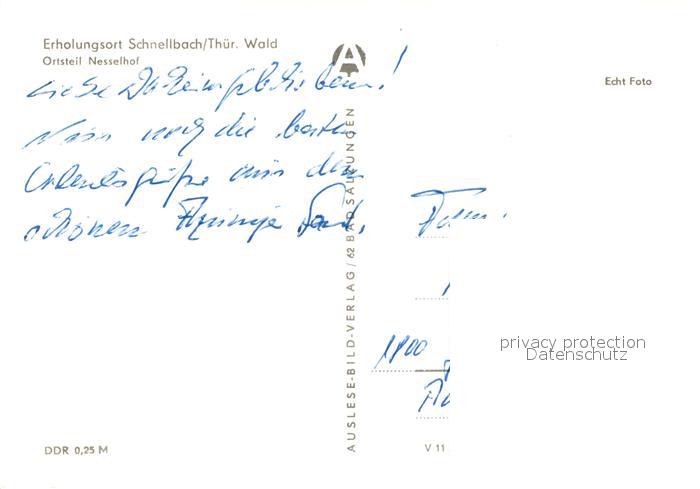 Erholungsort Schnellbach/Thür. Wald
Ortsteil Nesselhof
Echt Foto
Liebe Daheimgebliebenen!
Nun noch die besten
Urlaubsgrüße aus dem
schönen Thüringer
Fam.
AUSLESE-BILD-VERLAG/62 BAD SALZUNGEN
privacy protection
Datenschutz
DDR 0,25 M
V 11